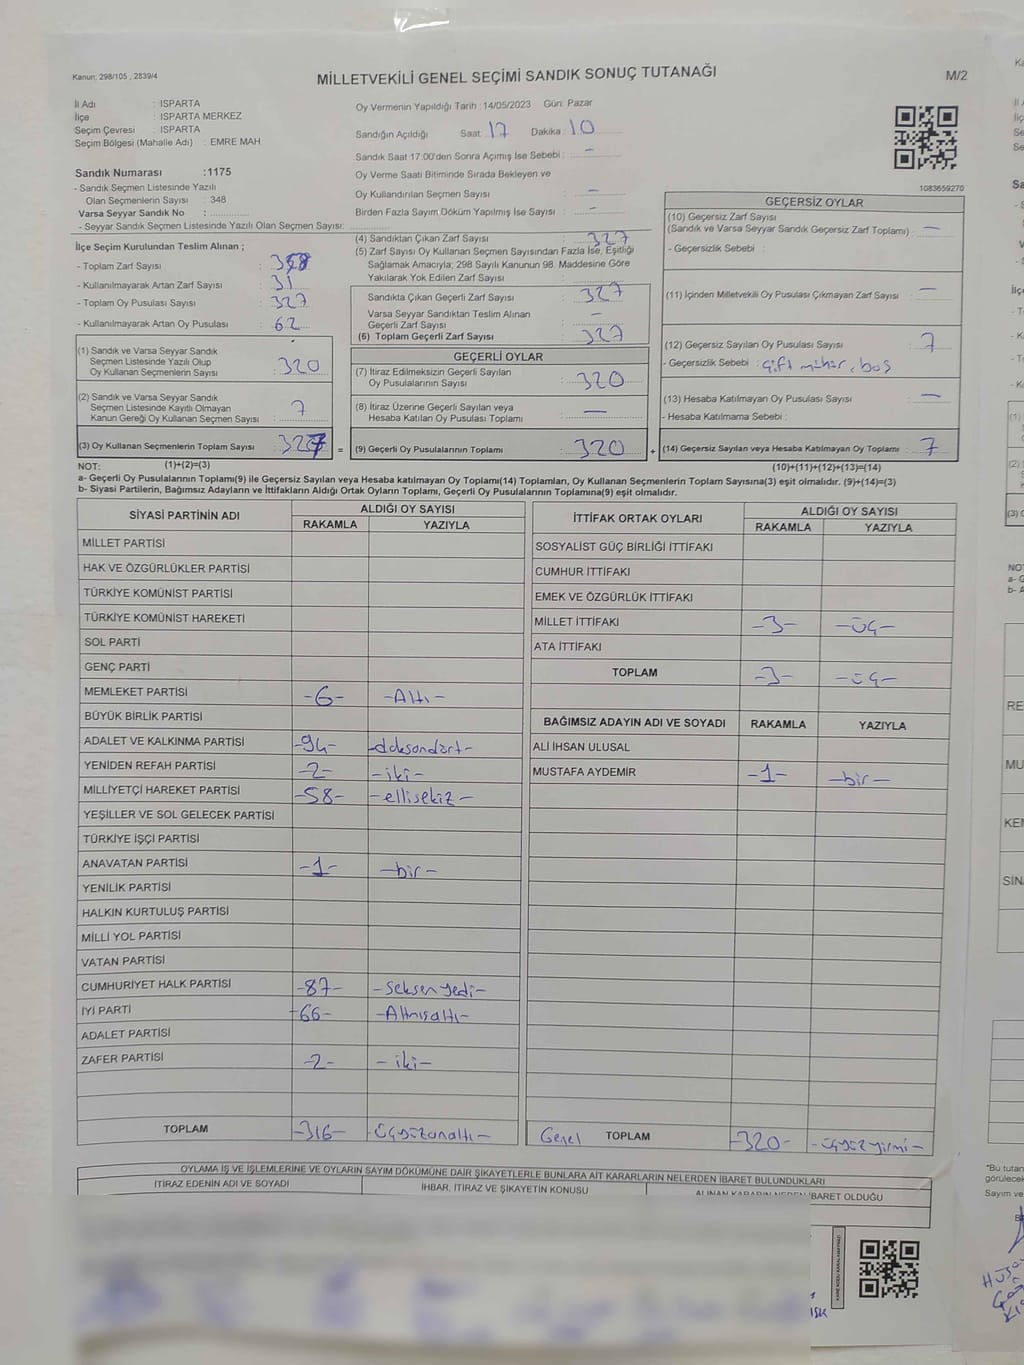 Kanun: 298/105 , 2839/4
MİLLETVEKİLİ GENEL SEÇİMİ SANDIK SONUÇ TUTANAĞI
M/2
İl Adı : ISPARTA
İlçe : ISPARTA MERKEZ
Seçim Çevresi : ISPARTA
Seçim Bölgesi (Mahalle Adı) : EMRE MAH
Sandık Numarası :1175
- Sandık Seçmen Listesinde Yazılı
Olan Seçmenlerin Sayısı : 348
Varsa Seyyar Sandık No :
- Seyyar Sandık Seçmen Listesinde Yazılı Olan Seçmen Sayısı:
Oy Vermenin Yapıldığı Tarih : 14/05/2023 Gün: Pazar
Sandığın Açıldığı Saat 17 Dakika 10
Sandık Saat 17:00'den Sonra Açımış İse Sebebi : -
Oy Verme Saati Bitiminde Sırada Bekleyen ve
Oy Kullandırılan Seçmen Sayısı : -
Birden Fazla Sayım Döküm Yapılmış İse Sayısı : -
1083659270
İlçe Seçim Kurulundan Teslim Alınan ;
- Toplam Zarf Sayısı : 358
- Kullanılmayarak Artan Zarf Sayısı : 31
- Toplam Oy Pusulası Sayısı : 327
- Kullanılmayarak Artan Oy Pusulası : 62
(1) Sandık ve Varsa Seyyar Sandık
Seçmen Listesinde Yazılı Olup
Oy Kullanan Seçmenlerin Sayısı : 320
(2) Sandık ve Varsa Seyyar Sandık
Seçmen Listesinde Kayıtlı Olmayan
Kanun Gereği Oy Kullanan Seçmen Sayısı : 7
(3) Oy Kullanan Seçmenlerin Toplam Sayısı : 327
=
(4) Sandıktan Çıkan Zarf Sayısı : 327
(5) Zarf Sayısı Oy Kullanan Seçmen Sayısından Fazla İse, Eşitliği
Sağlamak Amacıyla; 298 Sayılı Kanunun 98. Maddesine Göre
Yakılarak Yok Edilen Zarf Sayısı :
Sandıkta Çıkan Geçerli Zarf Sayısı : 327
Varsa Seyyar Sandıktan Teslim Alınan
Geçerli Zarf Sayısı : -
(6) Toplam Geçerli Zarf Sayısı : 327
GEÇERLİ OYLAR
(7) İtiraz Edilmeksizin Geçerli Sayılan
Oy Pusulalarının Sayısı : 320
(8) İtiraz Üzerine Geçerli Sayılan veya
Hesaba Katılan Oy Pusulası Toplamı : —
(9) Geçerli Oy Pusulalarının Toplamı : 320
+
GEÇERSİZ OYLAR
(10) Geçersiz Zarf Sayısı
(Sandık ve Varsa Seyyar Sandık Geçersiz Zarf Toplamı) : —
- Geçersizlik Sebebi :
(11) İçinden Milletvekili Oy Pusulası Çıkmayan Zarf Sayısı : —
(12) Geçersiz Sayılan Oy Pusulası Sayısı : 7
- Geçersizlik Sebebi : çift mühür, boş
(13) Hesaba Katılmayan Oy Pusulası Sayısı : —
- Hesaba Katılmama Sebebi :
(14) Geçersiz Sayılan veya Hesaba Katılmayan Oy Toplamı : 7
NOT: (1)+(2)=(3)
(10)+(11)+(12)+(13)=(14)
a- Geçerli Oy Pusulalarının Toplamı(9) ile Geçersiz Sayılan veya Hesaba katılmayan Oy Toplamı(14) Toplamları, Oy Kullanan Seçmenlerin Toplam Sayısına(3) eşit olmalıdır. (9)+(14)=(3)
b- Siyasi Partilerin, Bağımsız Adayların ve İttifakların Aldığı Ortak Oyların Toplamı, Geçerli Oy Pusulalarının Toplamına(9) eşit olmalıdır.
SİYASİ PARTİNİN ADI ALDIĞI OY SAYISI
RAKAMLA YAZIYLA
MİLLET PARTİSİ
HAK VE ÖZGÜRLÜKLER PARTİSİ
TÜRKİYE KOMÜNİST PARTİSİ
TÜRKİYE KOMÜNİST HAREKETİ
SOL PARTİ
GENÇ PARTİ
MEMLEKET PARTİSİ -6- -Altı-
BÜYÜK BİRLİK PARTİSİ
ADALET VE KALKINMA PARTİSİ -94- -doksandört-
YENİDEN REFAH PARTİSİ -2- -iki-
MİLLİYETÇİ HAREKET PARTİSİ -58- -ellisekiz-
YEŞİLLER VE SOL GELECEK PARTİSİ
TÜRKİYE İŞÇİ PARTİSİ
ANAVATAN PARTİSİ -1- -bir-
YENİLİK PARTİSİ
HALKIN KURTULUŞ PARTİSİ
MİLLİ YOL PARTİSİ
VATAN PARTİSİ
CUMHURİYET HALK PARTİSİ -87- -Seksenyedi-
İYİ PARTİ -66- -Altmışaltı-
ADALET PARTİSİ
ZAFER PARTİSİ -2- -iki-
TOPLAM -316- -üçyüzonaltı-
İTTİFAK ORTAK OYLARI ALDIĞI OY SAYISI
RAKAMLA YAZIYLA
SOSYALİST GÜÇ BİRLİĞİ İTTİFAKI
CUMHUR İTTİFAKI
EMEK VE ÖZGÜRLÜK İTTİFAKI
MİLLET İTTİFAKI -3- -üç-
ATA İTTİFAKI
TOPLAM -3- -üç-
BAĞIMSIZ ADAYIN ADI VE SOYADI RAKAMLA YAZIYLA
ALİ İHSAN ULUSAL
MUSTAFA AYDEMİR -1- -bir-
Genel TOPLAM -320- -üçyüzyirmi-
OYLAMA İŞ VE İŞLEMLERİNE VE OYLARIN SAYIM DÖKÜMÜNE DAİR ŞİKAYETLERLE BUNLARA AİT KARARLARIN NELERDEN İBARET BULUNDUKLARI
İTİRAZ EDENİN ADI VE SOYADI İHBAR, İTİRAZ VE ŞİKAYETİN KONUSU ALINAN KARARIN NEDEN İBARET OLDUĞU